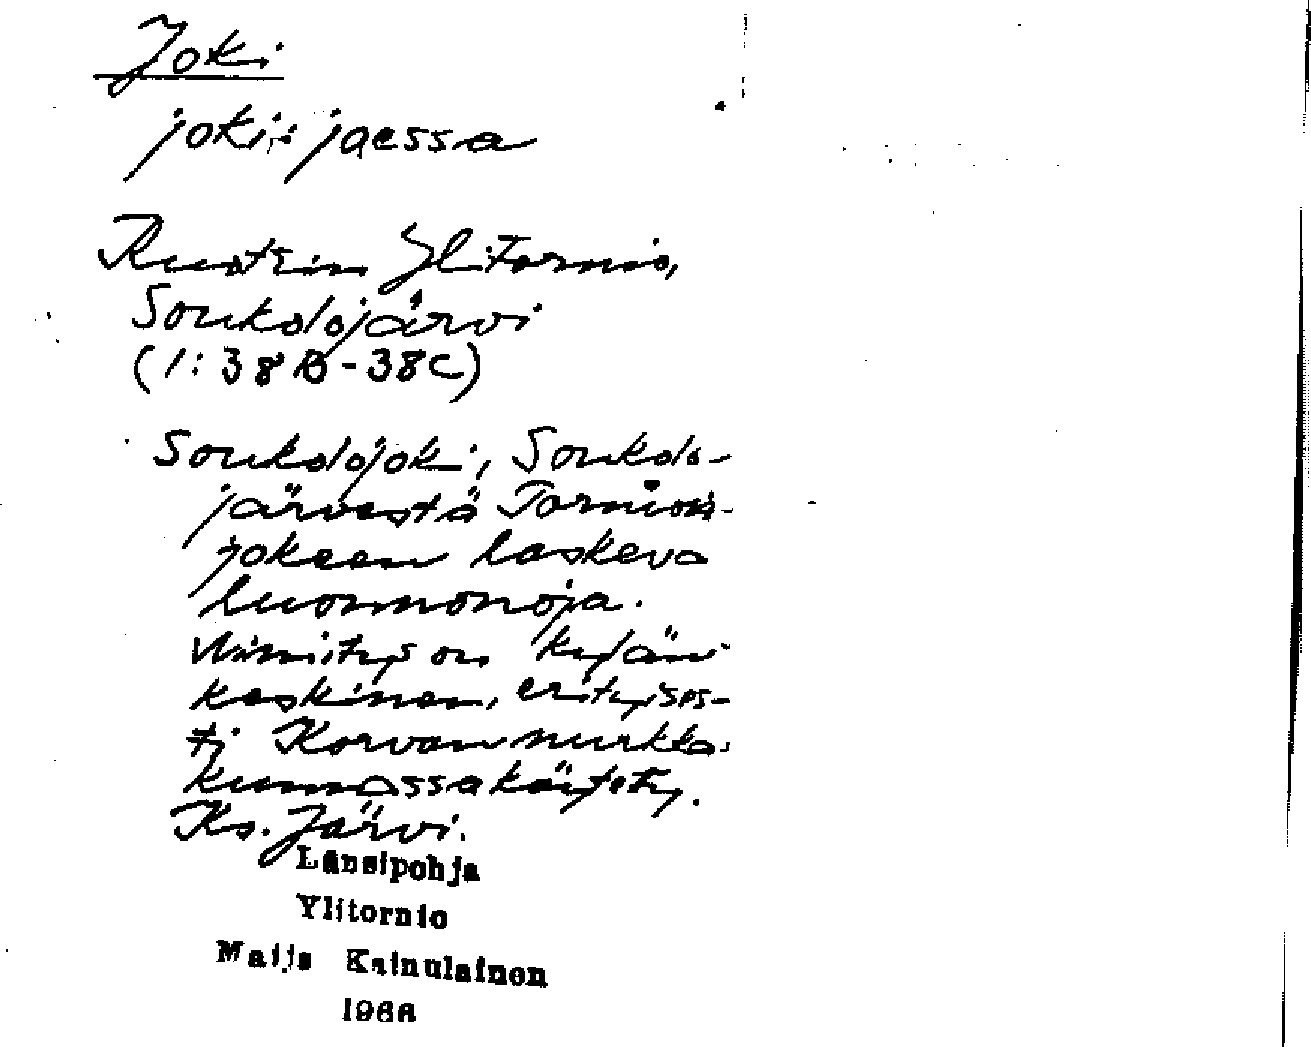 Joki
joki: jaessa
Ruotsin Ylitornio,
Soukolojärvi
(1:38B-38C)
Soukolojoki, Soukolo-
järvestä Tornion-
jokeen laskeva
luonnonoja.
Nimitys on kylän
keskinen, erityises-
ti Korvan nurkka-
kunnassa käytetty.
Ks. Järvi.
Länsipohja
Ylitornio
Maija Kainulainen
1966